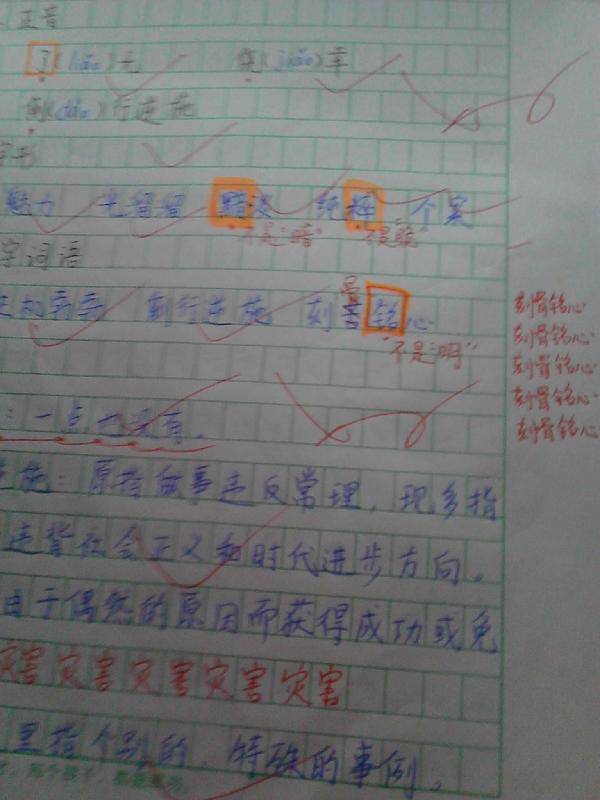 正音
了(liǎo)无 侥(jiǎo)幸
倒(dào)行逆施
字形
魅力 光溜溜 黯淡 纯粹 个案
不是"暗" 不是
字词语
生机勃勃 倒行逆施 刻骨铭心
"不是"明"
刻骨铭心
刻骨铭心
刻骨铭心
刻骨铭心
刻骨铭心
：一点也没有。
逆施：原指做事违反常理，现多指
违背社会正义和时代进步方向。
由于偶然的原因而获得成功或免
灾害 灾害 灾害 灾害 灾害
里指个别的、特殊的事例。